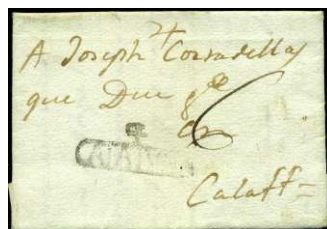 A Joseph Corradellas
que Due g.de
en
6
Calaff=